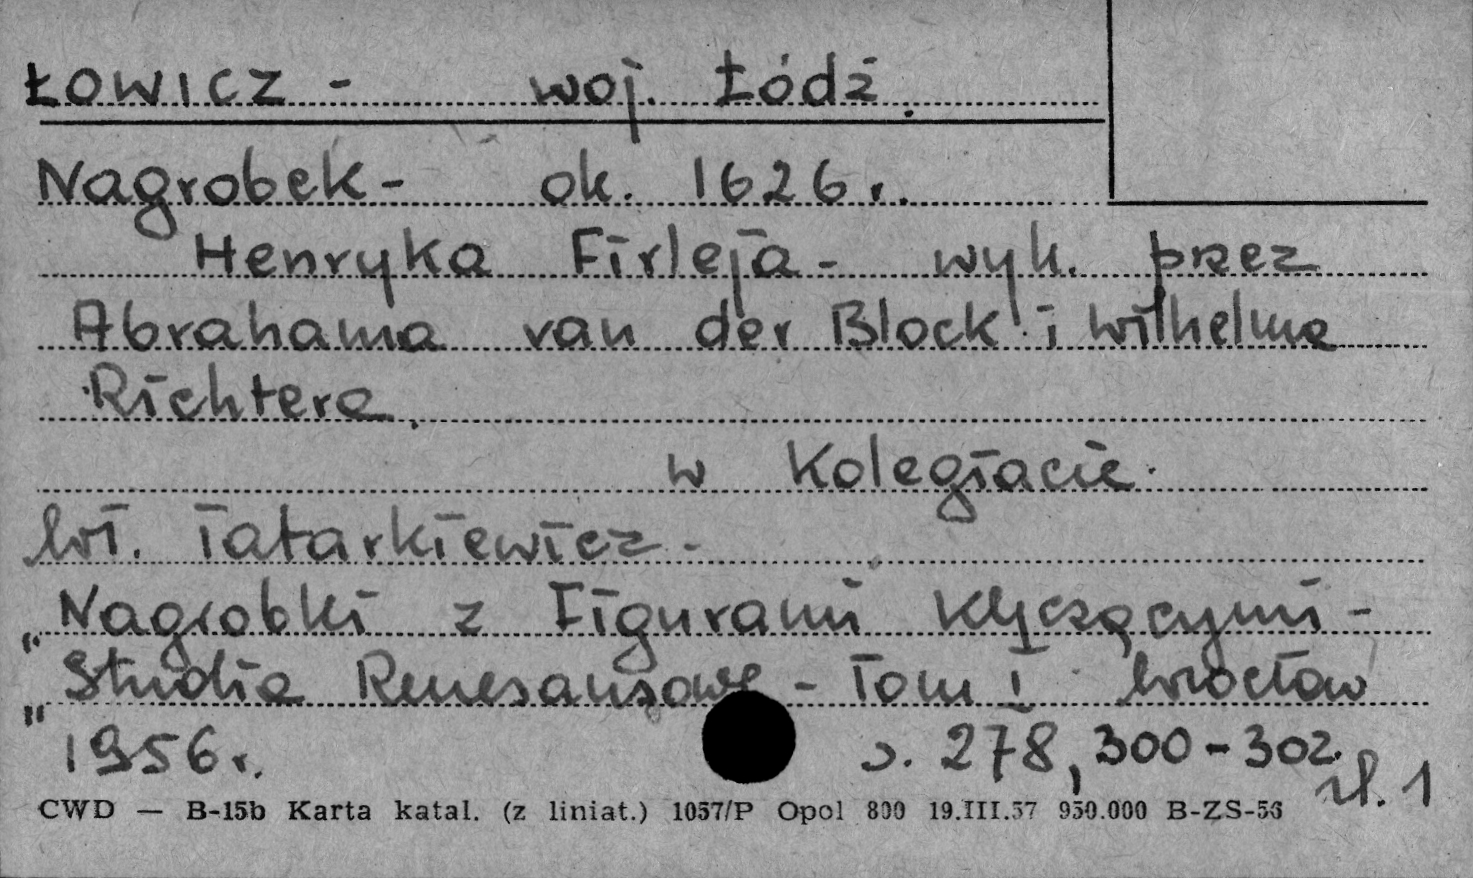 ŁOWICZ - woj. Łódź.
Nagrobek - ok. 1626 r.
Henryka Firleja - wyk. przez
Abrahama van der Block i Wilhelma
Richtera.
w Kolegiacie.
Wł. Tatarkiewicz -
"Nagrobki z Figurami Klęczącymi -
Studia Renesansowe - Tom I Wrocław
"1956 r. s. 278, 300 - 302. il. 1
CWD — B-15b Karta katal. (z liniat.) 1057/P Opol 800 19.III.57 950.000 B-ZS-56